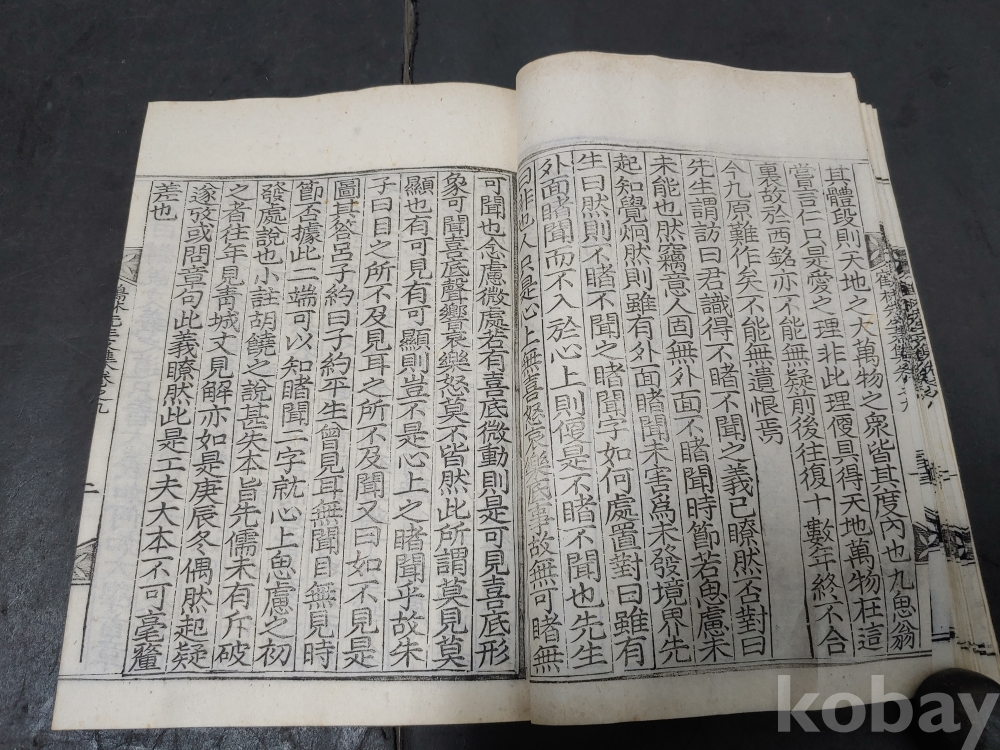 其體段則天地之大萬物之衆皆其度內也九思翁
嘗言仁只是愛之理非此理便具得天地萬物在這
裏故於西銘亦不能無疑前後往復十數年終不合
今九原難作矣不能無遺恨焉
先生謂訪曰君識得不睹不聞之義已瞭然否對曰
未能也然竊意人固無外面不睹聞時節若思慮未
起知覺烱然則雖有外面睹聞未害爲未發境界先
生曰然則不睹不聞之睹聞字如何處置對曰雖有
外面睹聞而不入於心上則便是不睹不聞也先生
曰非也人只是心上無喜怒哀樂底事故無可睹無
可聞也念慮微處若有喜底微動則是可見喜底形
象可聞喜底聲響哀樂怒莫不皆然此所謂莫見莫
顯也有可見有可顯則豈不是心上之睹聞乎故朱
子曰目之所不及見耳之所不及聞又曰如不見是
圖其答呂子約曰子約平生曾見耳無聞目無見時
節否據此二端可以知睹聞二字就心上思慮之初
發處說也小註胡饒之說甚失本旨先儒未有斥破
之者往年見靑城丈見解亦如是庚辰冬偶然起疑
遂攷或問章句此義瞭然此是工夫大本不可毫釐
差也
二
kobay